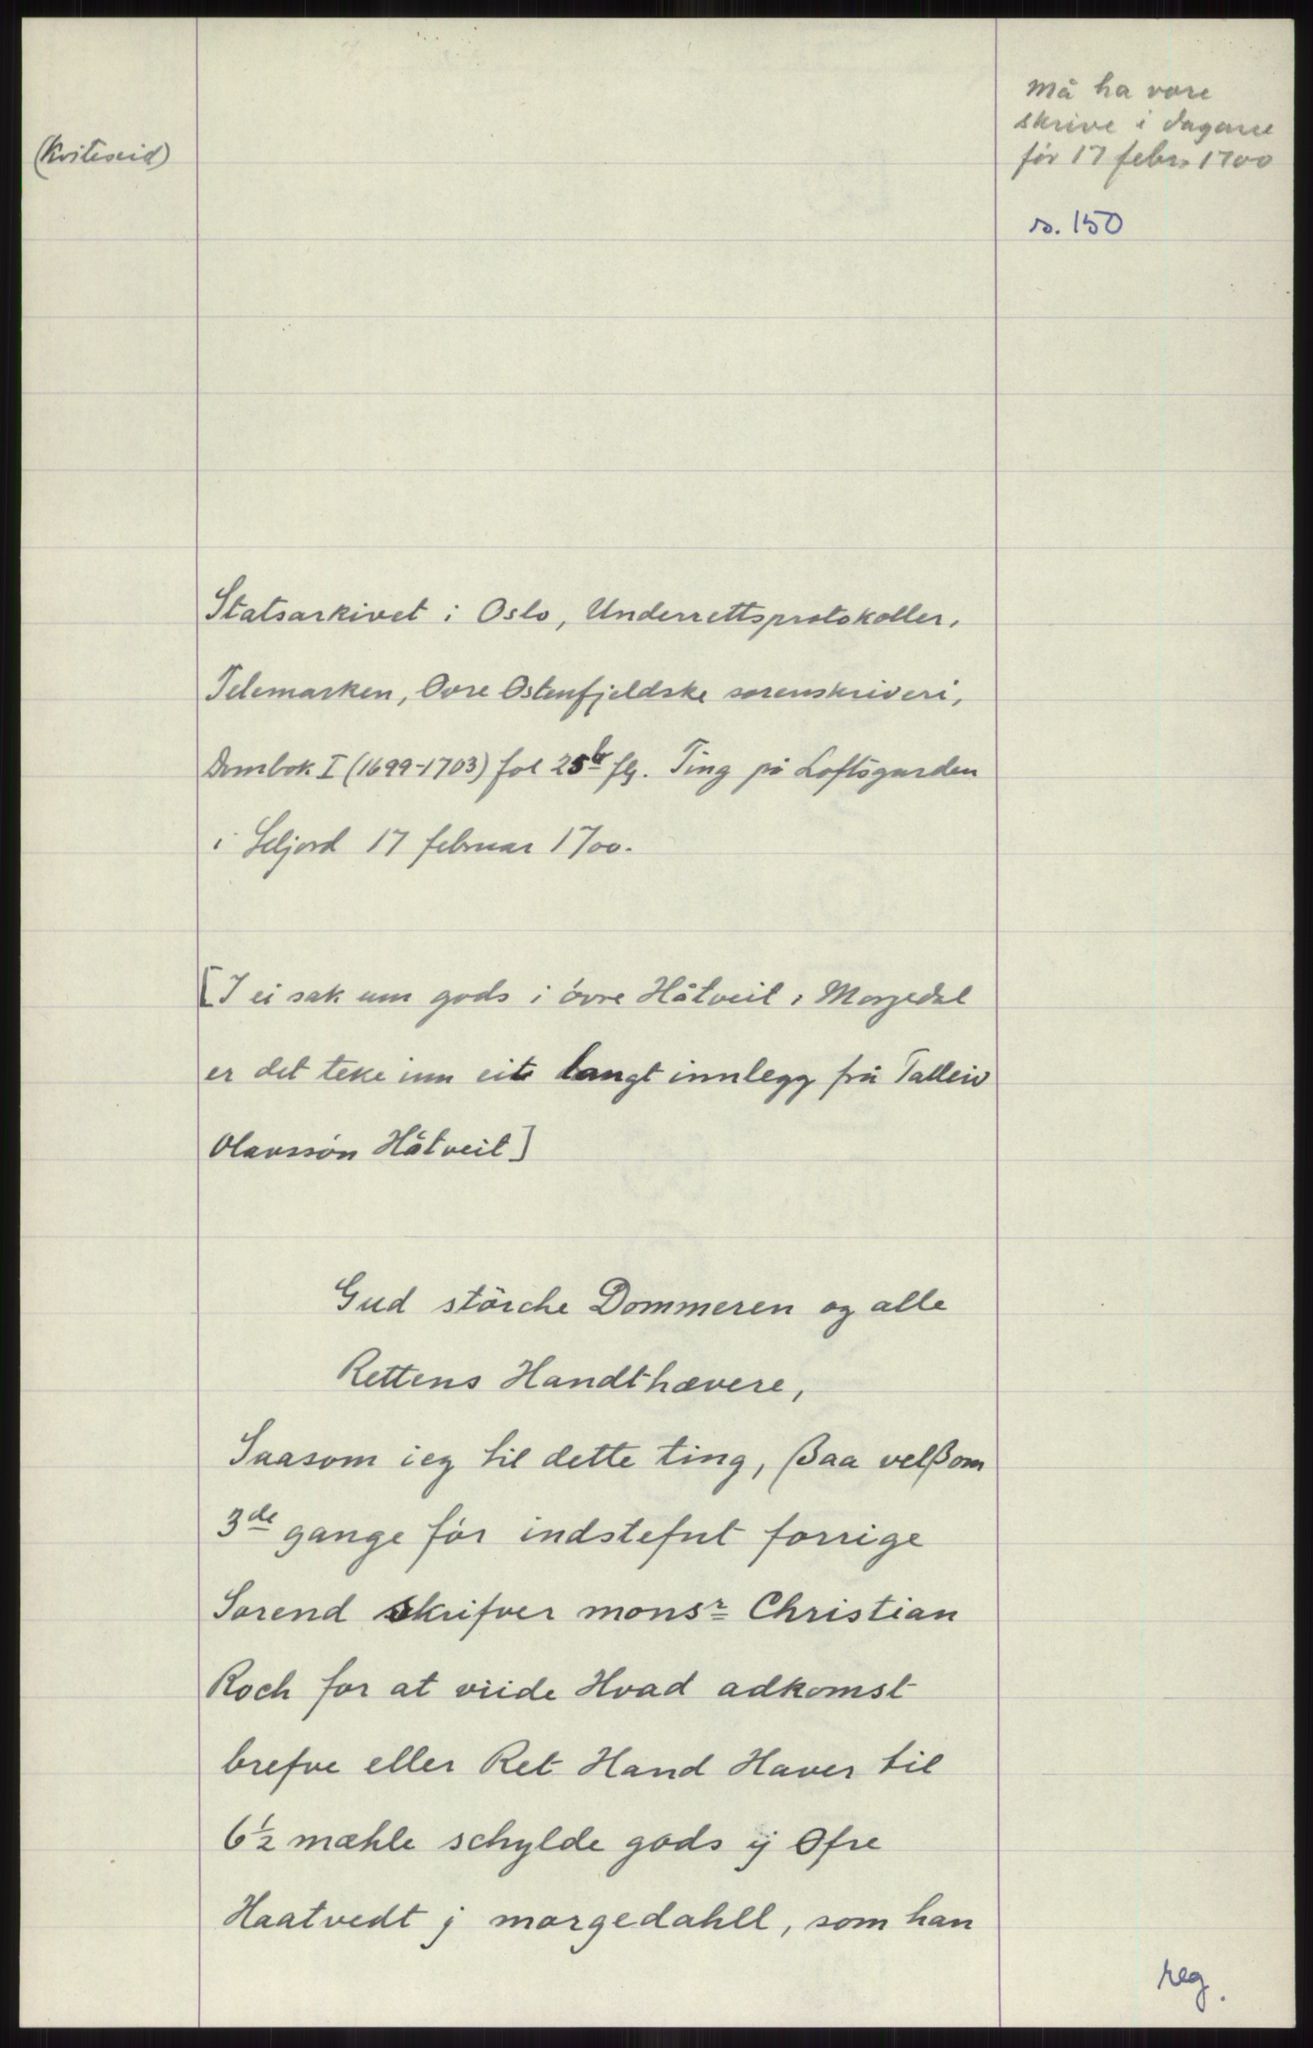 (Kviteseid)
Må ha vore
skrive i dagane
før 17 febr. 1700
s. 150
Statsarkivet i Oslo, Underrettsprotokoller,
Telemarken, Øvre Østenfjeldske sorenskriveri,
Dombok I (1699-1703) fol 25b flg. Ting på Loftsgarden
i Seljord 17 februar 1700.
[I ei sak um gods i øvre Håtveit i Morgedal
er det teke inn eit langt innlegg frå Talleiv
Olavssøn Håtveit]
Gud störche Dommeren og alle
Rettens Handthævere,
Saasom ieg til dette ting, ßaa velßom
3de gange før indstefnt forrige
Sorend skrifver monsr Christian
Roch for at viide Hvad adkomst
brefve eller Ret Hand Haver til
6½ mæhle schylde gods ij Øfre
Haatvedt j morgedahll, som han
reg.